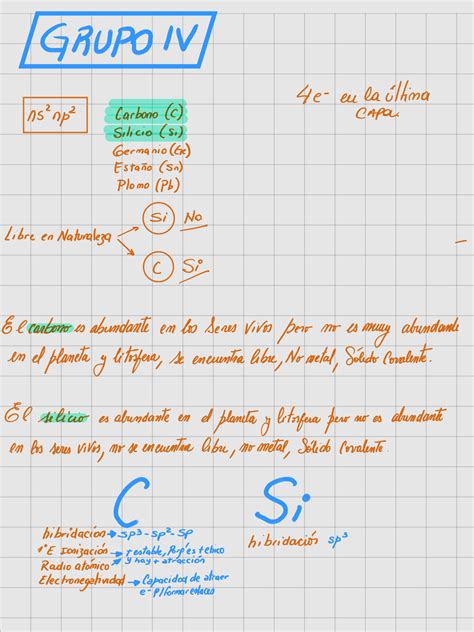 GRUPO IV
4e- en la última
capa.
ns² np²
Carbono (C)
Silicio (Si)
Germanio (Ge)
Estaño (Sn)
Plomo (Pb)
Libre en Naturaleza
Si No
C Si
El carbono es abundante en los seres vivos pero no es muy abundante
en el planeta y litosfera, se encuentra libre, No metal, Sólido Covalente.
El silicio es abundante en el planeta y litosfera pero no es abundante
en los seres vivos, no se encuentra libre, no metal, Sólido Covalente.
C Si
hibridación → sp³ - sp² - sp
hibridación sp³
1° E Ionización → + estable,
Radio atómico y hay + atracción
Electronegatividad → Capacidad de atraer
e- p/formar enlaces